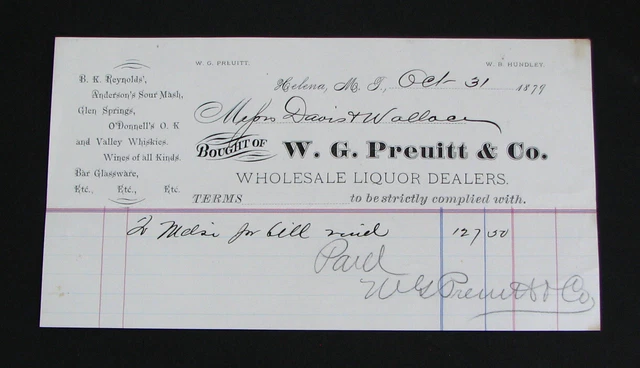 W. G. PREUITT.
W. B. HUNDLEY.
Helena, M. T., Oct 31 1879
Messrs Davis & Wallace
BOUGHT OF W. G. Preuitt & Co.
WHOLESALE LIQUOR DEALERS.
TERMS to be strictly complied with.
B. K. Reynolds',
Anderson's Sour Mash,
Glen Springs,
O'Donnell's O. K
and Valley Whiskies.
Wines of all Kinds.
Bar Glassware,
Etc., Etc., Etc.
To Mdse for bill 127 50
Paid
W G Preuitt & Co